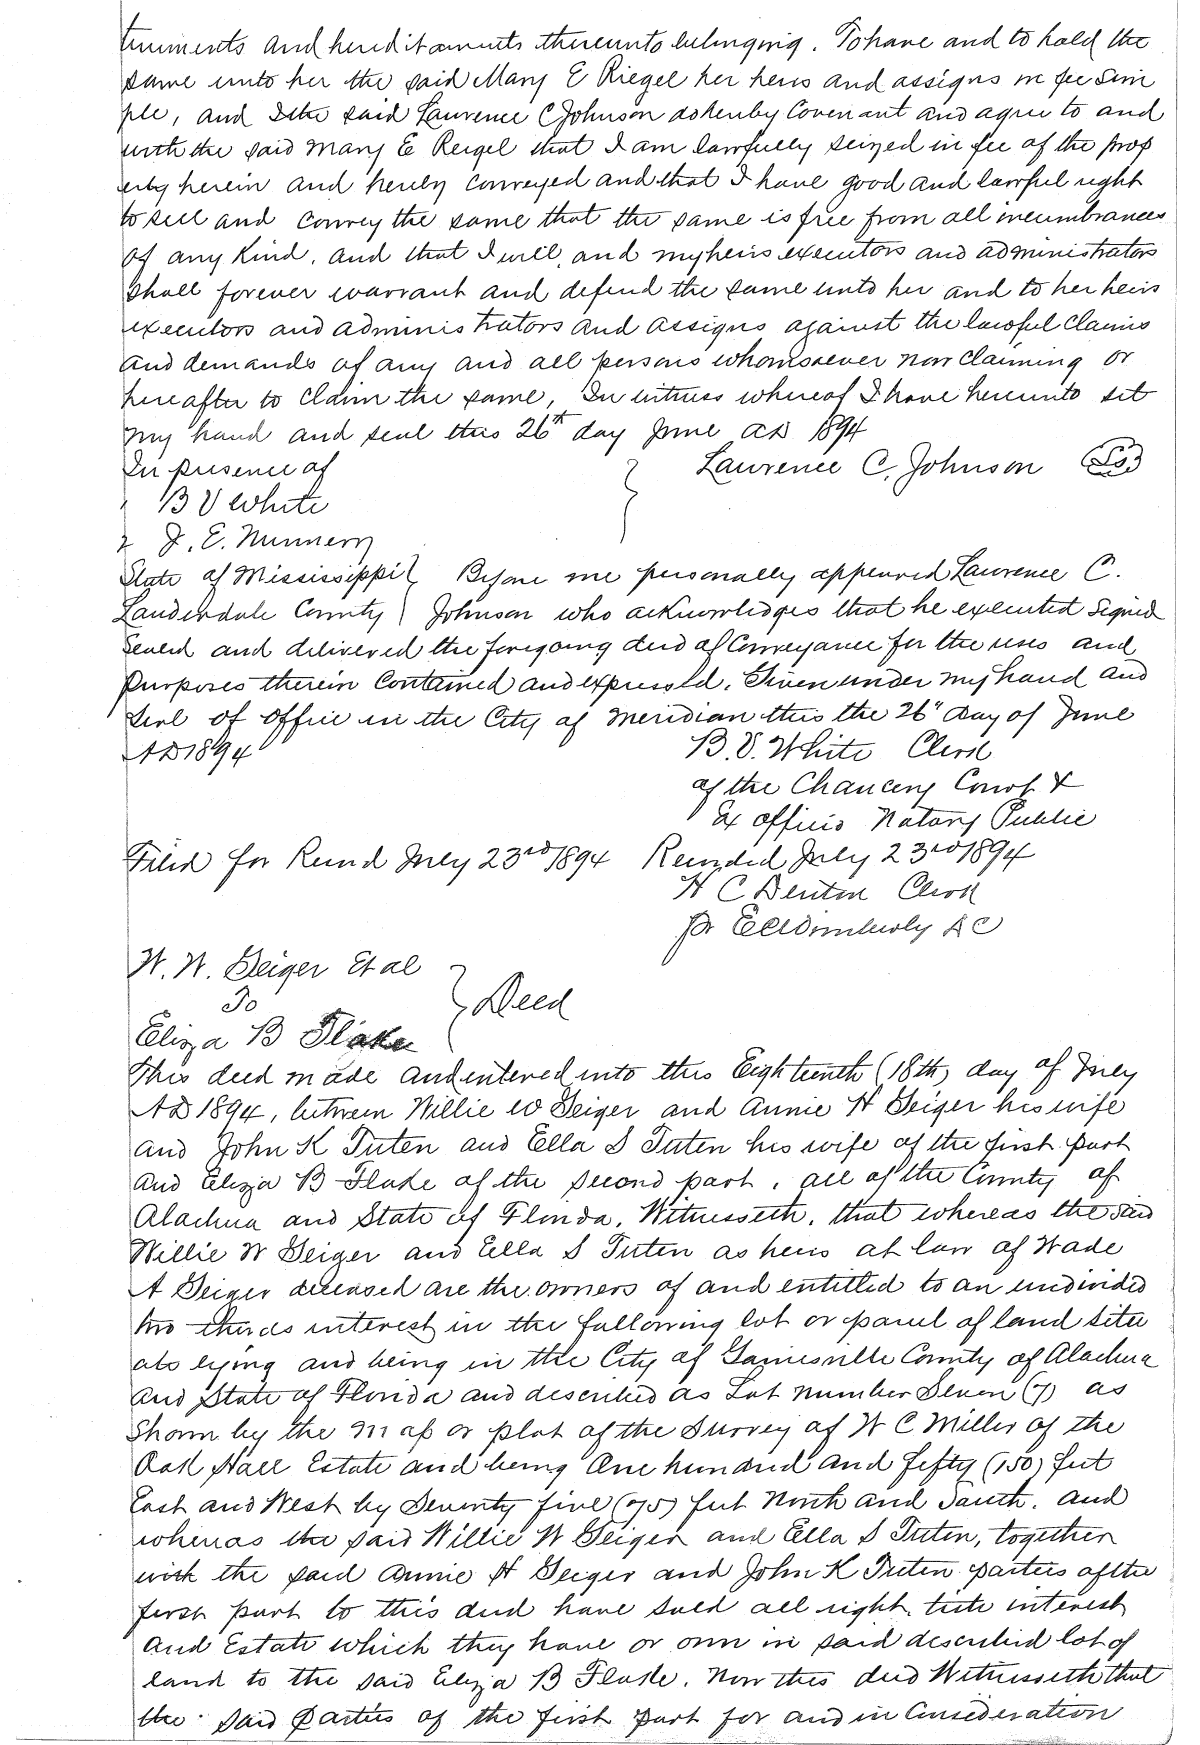 tenements and hereditaments thereunto belonging. To have and to hold the
same unto her the said Mary E Riegel her heirs and assigns in fee sim
ple, and I the said Laurence C Johnson do hereby Covenant and agree to and
with the said Mary E Reigel that I am lawfully seized in fee of the prop
erty herein and hereby conveyed and that I have good and lawful right
to sell and convey the same that the same is free from all incumbrances
of any kind, and that I will, and my heirs executors and administrators
shall forever warrant and defend the same unto her and to her heirs
executors and administrators and assigns against the lawful claims
and demands of any and all persons whomsoever now claiming or
hereafter to claim the same, In witness whereof I have hereunto set
my hand and seal this 26th day June AD 1894
In presence of } Laurence C. Johnson (LS)
B V White
J. E. Nunnery
State of Mississippi } Before me personally appeared Laurence C.
Lauderdale County } Johnson who acknowledges that he executed signed
sealed and delivered the foregoing deed of Conveyance for the uses and
purposes therein contained and expressed. Given under my hand and
seal of office in the City of Meridian this the 26" day of June
AD 1894 B. V. White Clerk
of the Chancery Court &
Ex officio Notary Public
Filed for Record July 23rd 1894 Recorded July 23rd 1894
H C Denton Clerk
pr DC
W. W. Geiger Et al
To } Deed
Eliza B Flake
This deed made and entered into this Eighteenth (18th) day of July
AD 1894, between Willie W Geiger and Annie H Geiger his wife
and John K Tuten and Ella S Tuten his wife of the first part
and Eliza B Flake of the second part, all of the County of
Alachua and State of Florida, Witnesseth, that whereas the said
Willie W Geiger and Ella S Tuten as heirs at law of Wade
A Geiger deceased are the owners of and entitled to an undivided
two thirds interest in the following lot or parcel of land situ
ate lying and being in the City of Gainesville County of Alachua
and State of Florida and described as Lot number Seven (7) as
shown by the map or plat of the Survey of W C Miller of the
Oak Hall Estate and being One hundred and fifty (150) feet
East and West by Seventy five (75) feet North and South. and
whereas the said Willie W Geiger and Ella S Tuten, together
with the said Annie H Geiger and John K Tuten parties of the
first part to this deed have sold all right title interest
and Estate which they have or own in said described lot of
land to the said Eliza B Flake. Now this deed Witnesseth that
the said parties of the first part for and in Consideration